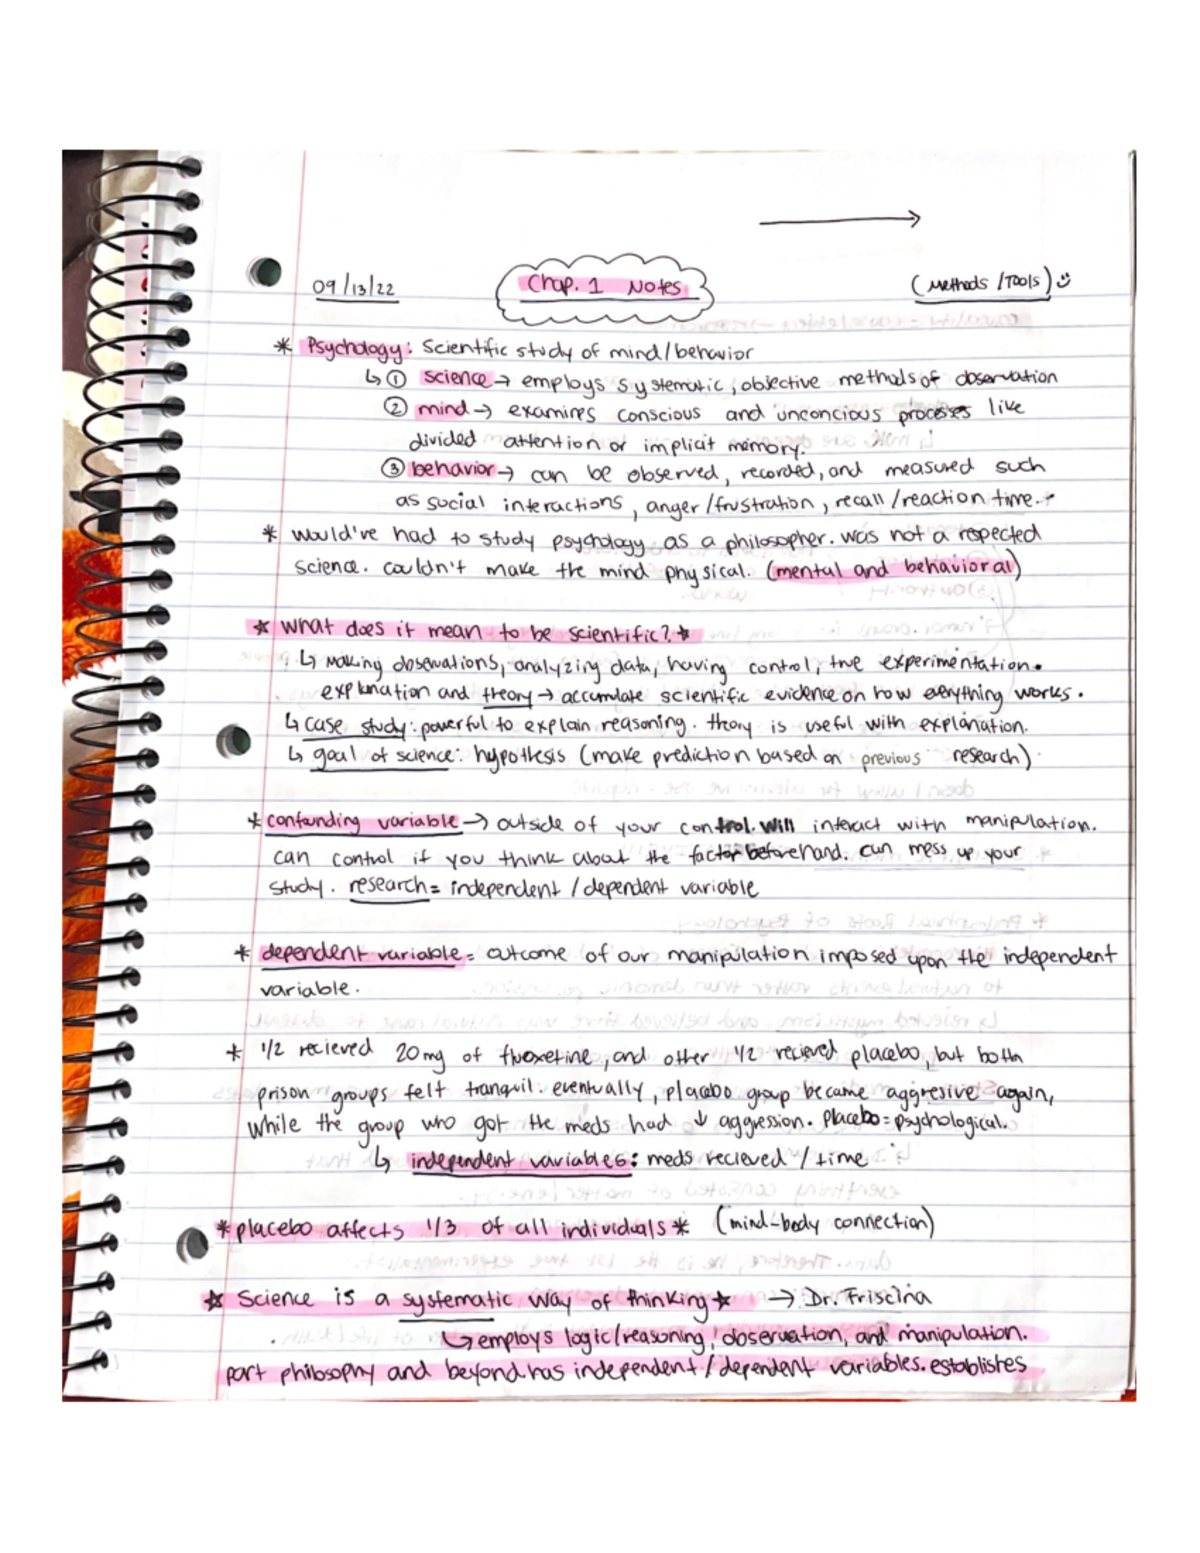 09/13/22 Chap. 1 Notes (Methods/Tools)
* Psychology: Scientific study of mind/behavior
↳ ① science → employs systematic, objective methods of observation
② mind → examines conscious and unconcious processes like
divided attention or implicit memory.
③ behavior → can be observed, recorded, and measured such
as social interactions, anger/frustration, recall/reaction time.
* would've had to study psychology as a philosopher. was not a respected
science. couldn't make the mind physical. (mental and behavioral)
☆ what does it mean to be scientific? ☆
↳ Making observations, analyzing data, having control, true experimentation.
explanation and theory → accumulate scientific evidence on how everything works.
↳ case study: powerful to explain reasoning. theory is useful with explanation.
↳ goal of science: hypothesis (make prediction based on previous research).
* confounding variable → outside of your control. will interact with manipulation.
can control if you think about the factor beforehand. can mess up your
study. research = independent/dependent variable
* dependent variable = outcome of our manipulation imposed upon the independent
variable.
* 1/2 recieved 20mg of fluoxetine, and other 1/2 recieved placebo, but both
prison groups felt tranquil. eventually, placebo group became aggresive again,
while the group who got the meds had ↓ aggression. placebo = psychological.
↳ independent variables: meds recieved/time
* placebo affects 1/3 of all individuals * (mind-body connection)
☆ Science is a systematic way of thinking ☆ → Dr. Friscina
↳ employs logic/reasoning, observation, and manipulation.
part philosophy and beyond. has independent/dependent variables. establishes